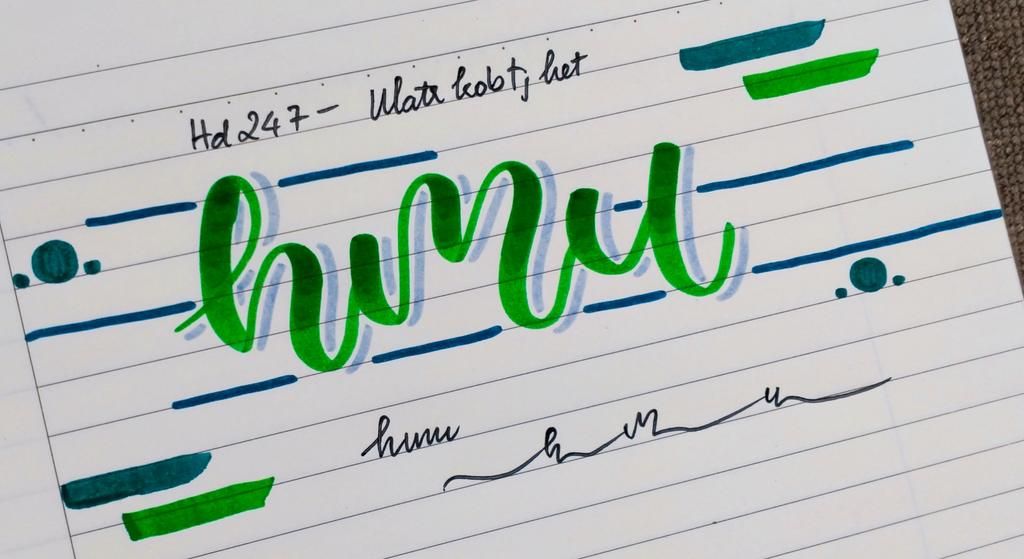 Hd 247 - Ulatx kobt, het
hmu
hmu
h m u